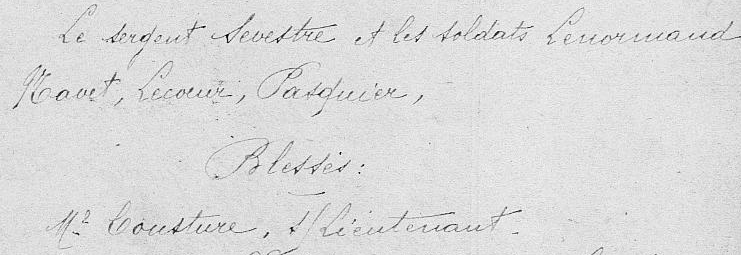 Le sergent Sevestre et les soldats Lenormand
Navet, Lecoeur, Pasquier,
Blessés:
Mr Cousture, s/Lieutenant.